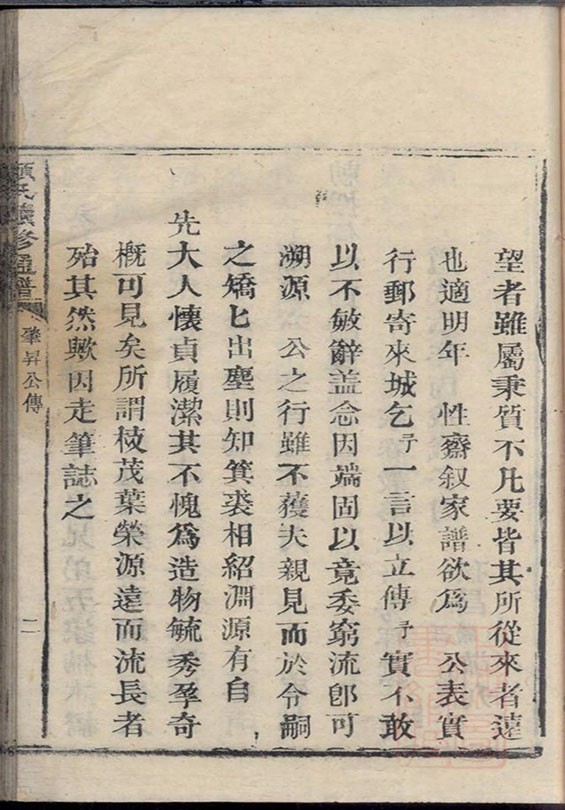 望者雖屬秉質不凡要皆其所從來者遠
也適明年 性齋叙家譜欲爲 公表實
行郵寄來城乞予一言以立傳予實不敢
以不敏辭盖念因端固以竟委窮流卽可
溯源 公之行雖不獲夫親見而於令嗣
之矯匕出塵則知箕裘相紹淵源有自
先大人懷貞履潔其不愧爲造物毓秀孕奇
概可見矣所謂枝茂葉榮源遠而流長者
殆其然歟因走筆誌之
氏 修通譜
肇昇公傳
二